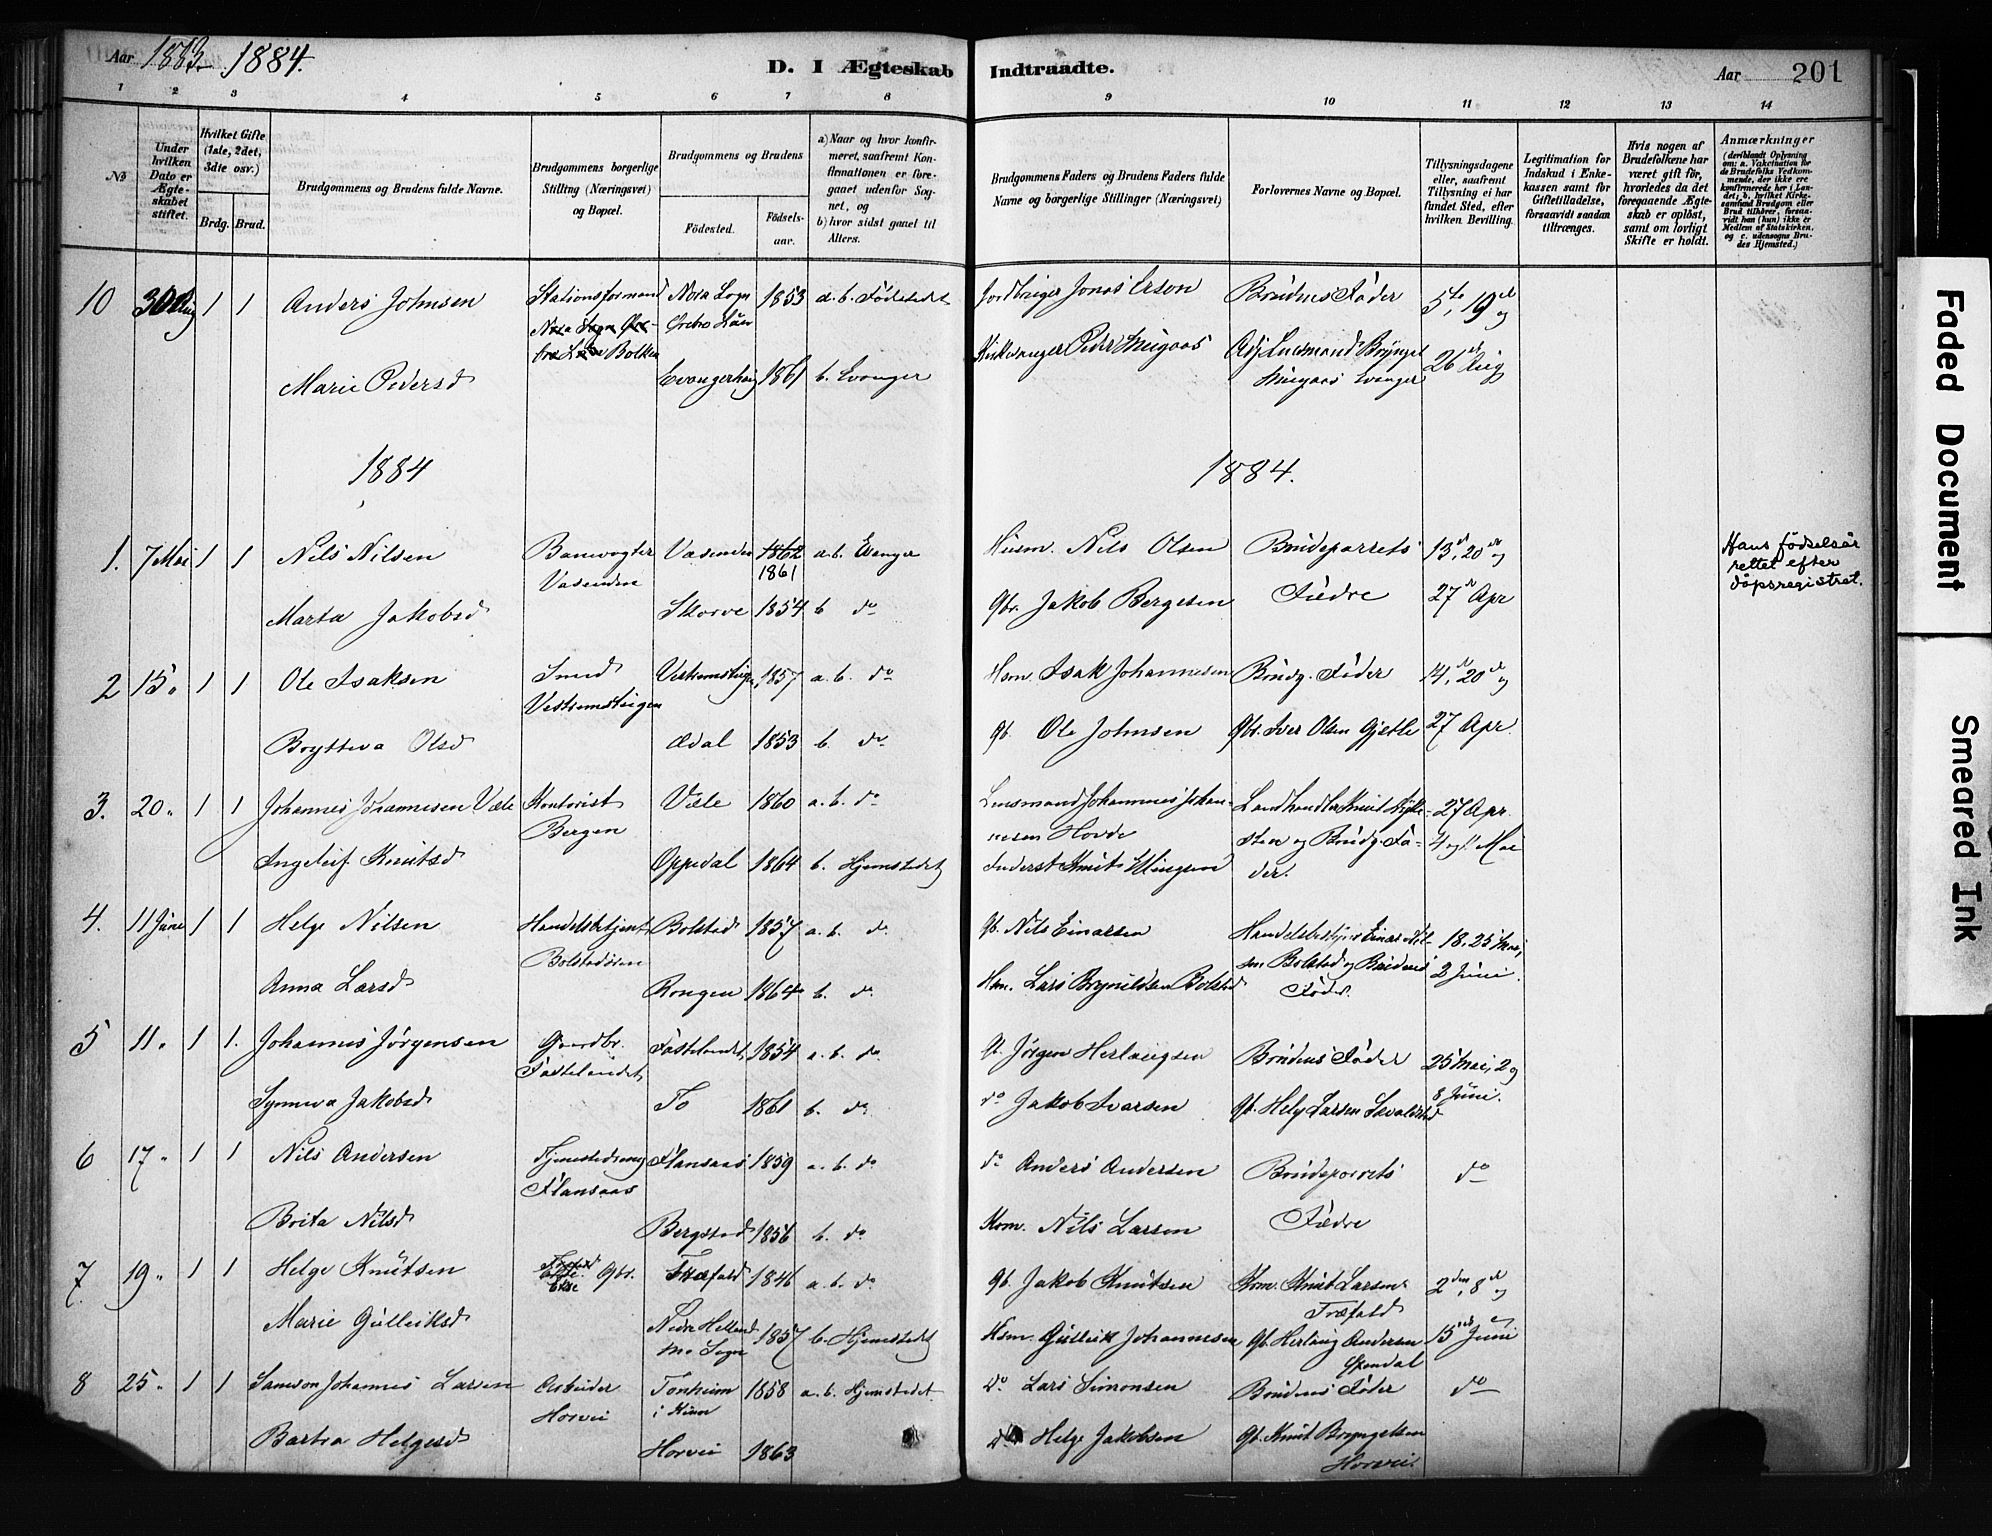 Aar 1883- 1884.
D. I Ægteskab Indtraadte.
Aar 201
1 2 3 4 5 6 7 8 9 10 11 12 13 14
No
Under hvilken Dato er Ægteskabet stiftet.
Hvilket Gifte (1ste, 2det, 3die osv.)
Brdg. Brud.
Brudgommens og Brudens fulde Navne.
Brudgommens borgerlige Stilling (Næringsvei) og Bopæl.
Brudgommens og Brudens
Fødested. Fødselsaar.
a) Naar og hvor konfirmeret, saafremt Konfirmationen er foregaaet udenfor Sognet, og
b) hvor sidst gaaet til Alters.
Brudgommens Faders og Brudens Faders fulde Navne og borgerlige Stillinger (Næringsvei)
Forlovernes Navne og Bopæl.
Tillysningsdagene eller, saafremt Tillysning ei har fundet Sted, efter hvilken Bevilling.
Legitimation for Indskud i Enkekassen samt for Giftetilladelse, forsaavidt saadan tiltrænges.
Hvis nogen af Brudefolkene har været gift før, hvorledes da det foregaaende Ægteskab er opløst, samt om lovligt Skifte er holdt.
Anmærkninger
(deriblandt Oplysning om: a. Vakcination for de Brudefolks Vedkommende, der ikke ere konfirmerede her i Landet, b. hvilket Kirkesamfund Brudgom eller Brud tilhører, forsaavidt han (hun) ikke er Medlem af Statskirken, og c. udensogns Brudes Hjemsted.)
10 30 Aug 1 1 Anders Johnsen Stationsformand Nora Sogn 1853 a. b. Fødestedet Jonas Erson Brudens Fader 5te, 19de og
Bolken Ørebro Län
Marie Pedersd Evanger 1861 b. Evanger Kirkesanger Peder Lensmand Brynjel Evanger 26de Aug
1884 1884.
1. 7 Mai 1 1 Nils Nilsen Banevogter Vasenden 1862 a. b. Evanger Husm. Nils Olsen Brudeparrets 13de, 20de og
Vasenden 1861
Hans fødselsår
rettet efter
dåpsregistret.
Marta Jakobsd Skorve 1854 b. do Gbr. Jakob Bergesen Fædre 27de Apr
2 15. 1 1 Ole Isaksen Smed 1857 a. b. do Hsm. Isak Johannesen Brudg. Fader 14, 20de og
Bryteva Olsd Ædal 1853 b. do Gb. Ole Johnsen Gbr. Iver Olsen Gjelle 27 Apr.
3. 20. 1 1 Johannes Johannesen Væle Kontorist Væle 1860 a. b. do Lensmand Johannes Johan- Landhandler Knut Bykle- 27 Apr.
Bergen nesen Hovde sten og Brudg. Fa- 4 og 11 Mai
Ingeleif Knutsd Oppedal 1864 b. Hjemstedet Inderst Knut Ellingsen der.
4. 11 Juni 1 1 Helge Nilsen Handelsbetjent Bolstad 1857 a. b. do Gb. Nils Einarsen Handelsbestyrer Einar Nil- 18, 25 Mai,
Bolstadøren sen Bolstad og Brudens 2 Juni
Anna Larsd Rongen 1864 b. do Hsm. Lars Brynildsen Bolstad Fader.
5 11. 1 1. Johannes Jørgensen Gaardbr. Fastelandet 1854 a. b. do Gb. Jørgen Herlaugsen Brudens Fader 25 Mai, 2 og
Fastelandet 8 Juni.
Synneva Jakobsd Fo 1861 b. do do Jakob Ivarsen Gb. Helge Larsen
6 17. 1 1 Nils Andersen Tjenestedreng Flansaas 1859 a. b. do do Anders Andersen Brudeparrets do
Flansaas
Brita Nilsd Bergstad 1856 b. do Hsm. Nils Larsen Fædre
7. 19. 1 1 Helge Knutsen Gbr. Træfald 1846 a. b. do Gb. Jakob Knutsen Hsm. Knut Larsen 2den, 8de og
Træfald
Marie Gulleiksd Nedre Helland 1857 b. Hjemstedet Hsm. Gulleik Johannesen Gb. Herlaug Andersen 15de Juni
Mo Sogn
8 25. 1 1 Samson Johannes Larsen Arbeider Tonheim 1858 a. b. Hjemstedet do Lars Simonsen Brudens Fader do
Horvei
Bartra Helgesd Horvei 1863 do Helge Jakobsen Gb. Knut Bryngelsen
Horvei.
Faded Document
Smeared Ink